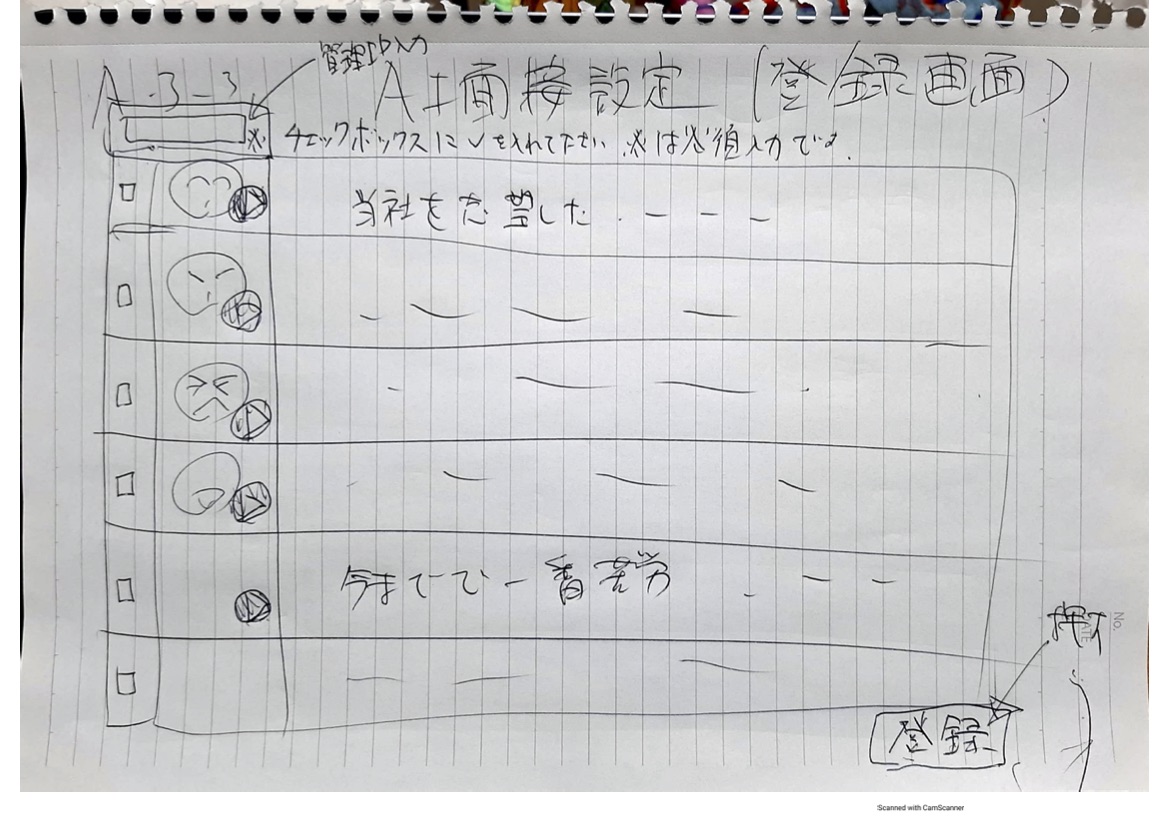 管理ID入力
A-3-3 AI面接設定(登録画面)
※ チェックボックスに✓を入れて下さい。※は必須入力です。
当社を志望した・ー ー ー
今までで一番苦労
押す
登録
No.
DATE
Scanned with CamScanner